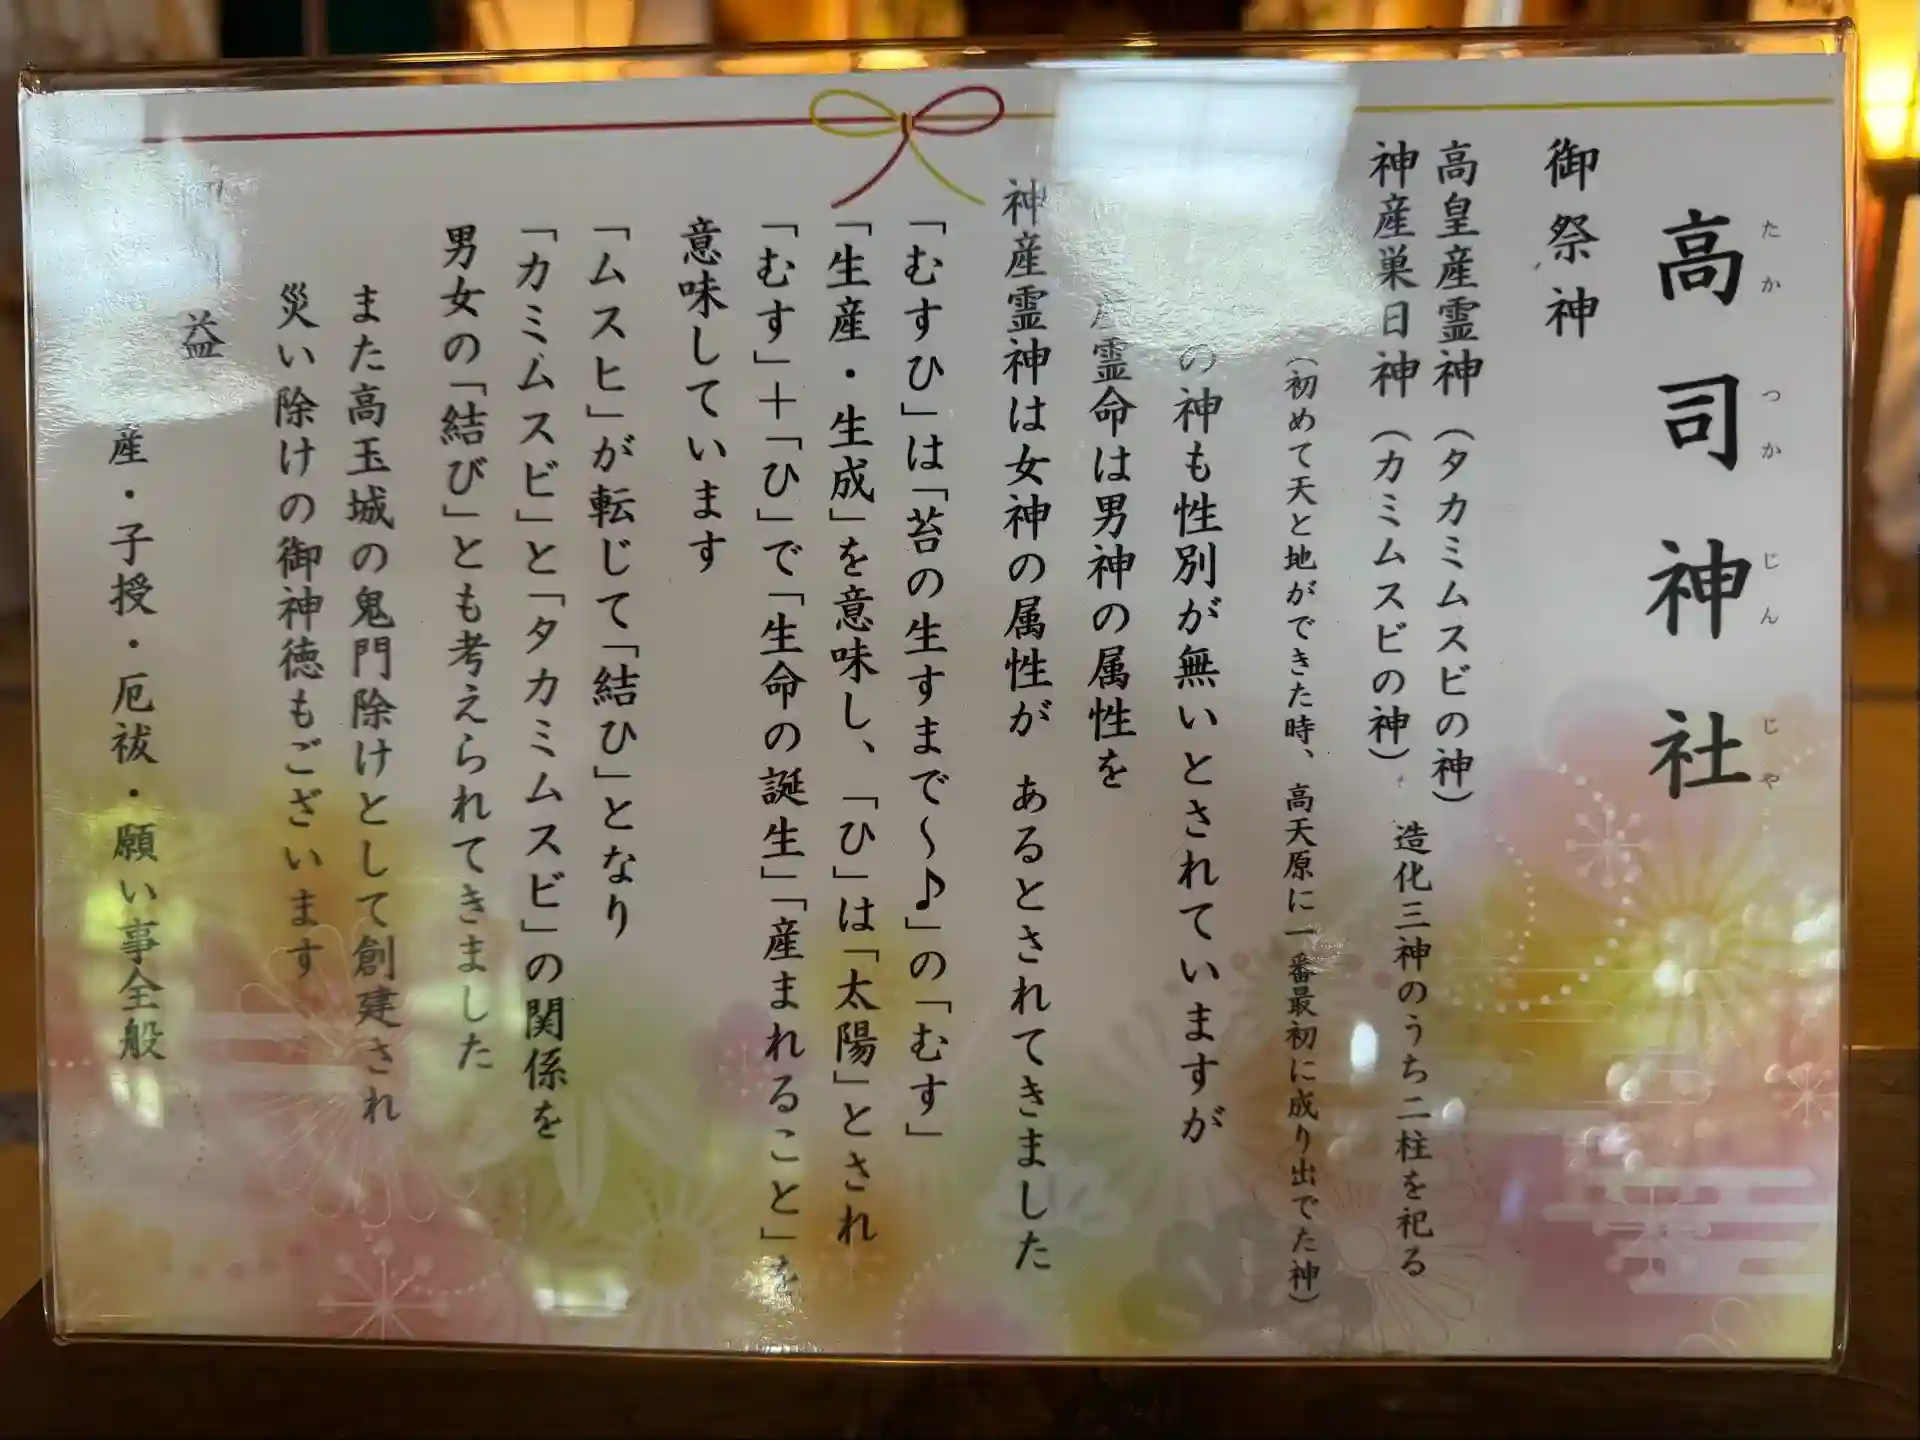 高司神社
たかつかじんじゃ
御祭神
高皇産霊神（タカミムスビの神）
神産巣日神（カミムスビの神）
造化三神のうち二柱を祀る
（初めて天と地ができた時、高天原に一番最初に成り出でた神）
の神も性別が無いとされていますが
霊命は男神の属性を
神産霊神は女神の属性が あるとされてきました
「むすひ」は「苔の生すまで～♪」の「むす」
「生産・生成」を意味し、「ひ」は「太陽」とされ
「むす」＋「ひ」で「生命の誕生」「産まれること」を
意味しています
「ムスヒ」が転じて「結ひ」となり
「カミムスビ」と「タカミムスビ」の関係を
男女の「結び」とも考えられてきました
また高玉城の鬼門除けとして創建され
災い除けの御神徳もございます
益
産・子授・厄祓・願い事全般